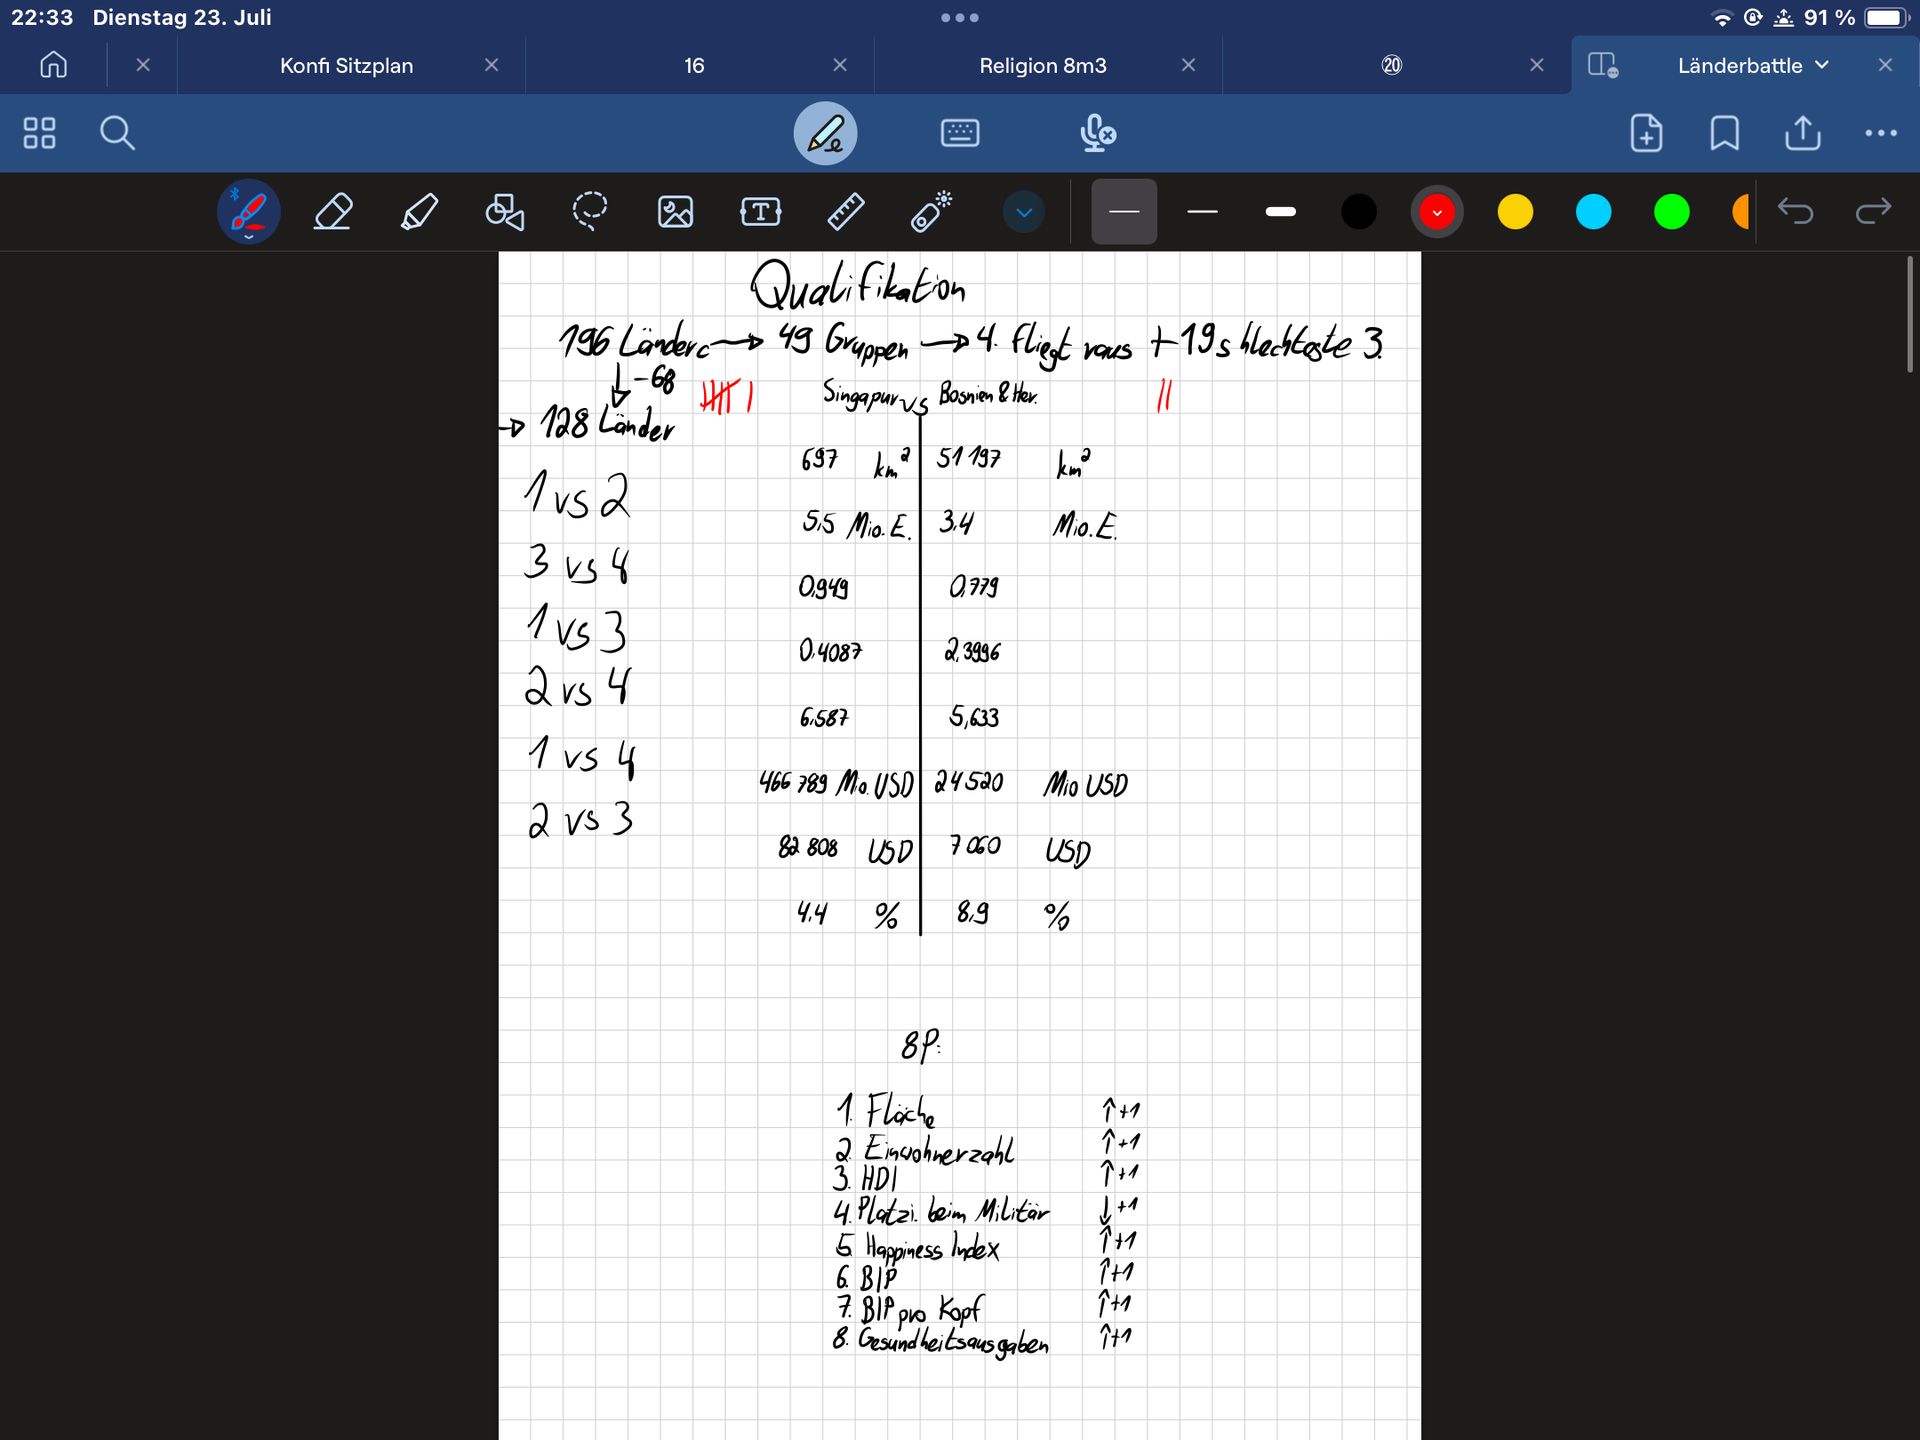 22:33 Dienstag 23. Juli
91 %
Konfi Sitzplan
16
Religion 8m3
⑳
Länderbattle
Qualifikation
196 Länder → 49 Gruppen → 4. fliegt raus + 19 schlechteste 3.
↓ -68
Singapur vs Bosnien & Her.
→ 128 Länder
697 km² 51 197 km²
1 vs 2
5,5 Mio. E. 3,4 Mio. E.
3 vs 4
0,949 0,779
1 vs 3
0,4087 2,3996
2 vs 4
6,587 5,633
1 vs 4
466 789 Mio. USD 24 520 Mio USD
2 vs 3
82 808 USD 7 060 USD
4,4 % 8,9 %
8P:
1. Fläche ↑ +1
2. Einwohnerzahl ↑ +1
3. HDI ↑ +1
4. Platzi. beim Militär ↓ +1
5. Happiness Index ↑ +1
6. BIP ↑ +1
7. BIP pro Kopf ↑ +1
8. Gesundheitsausgaben ↑ +1